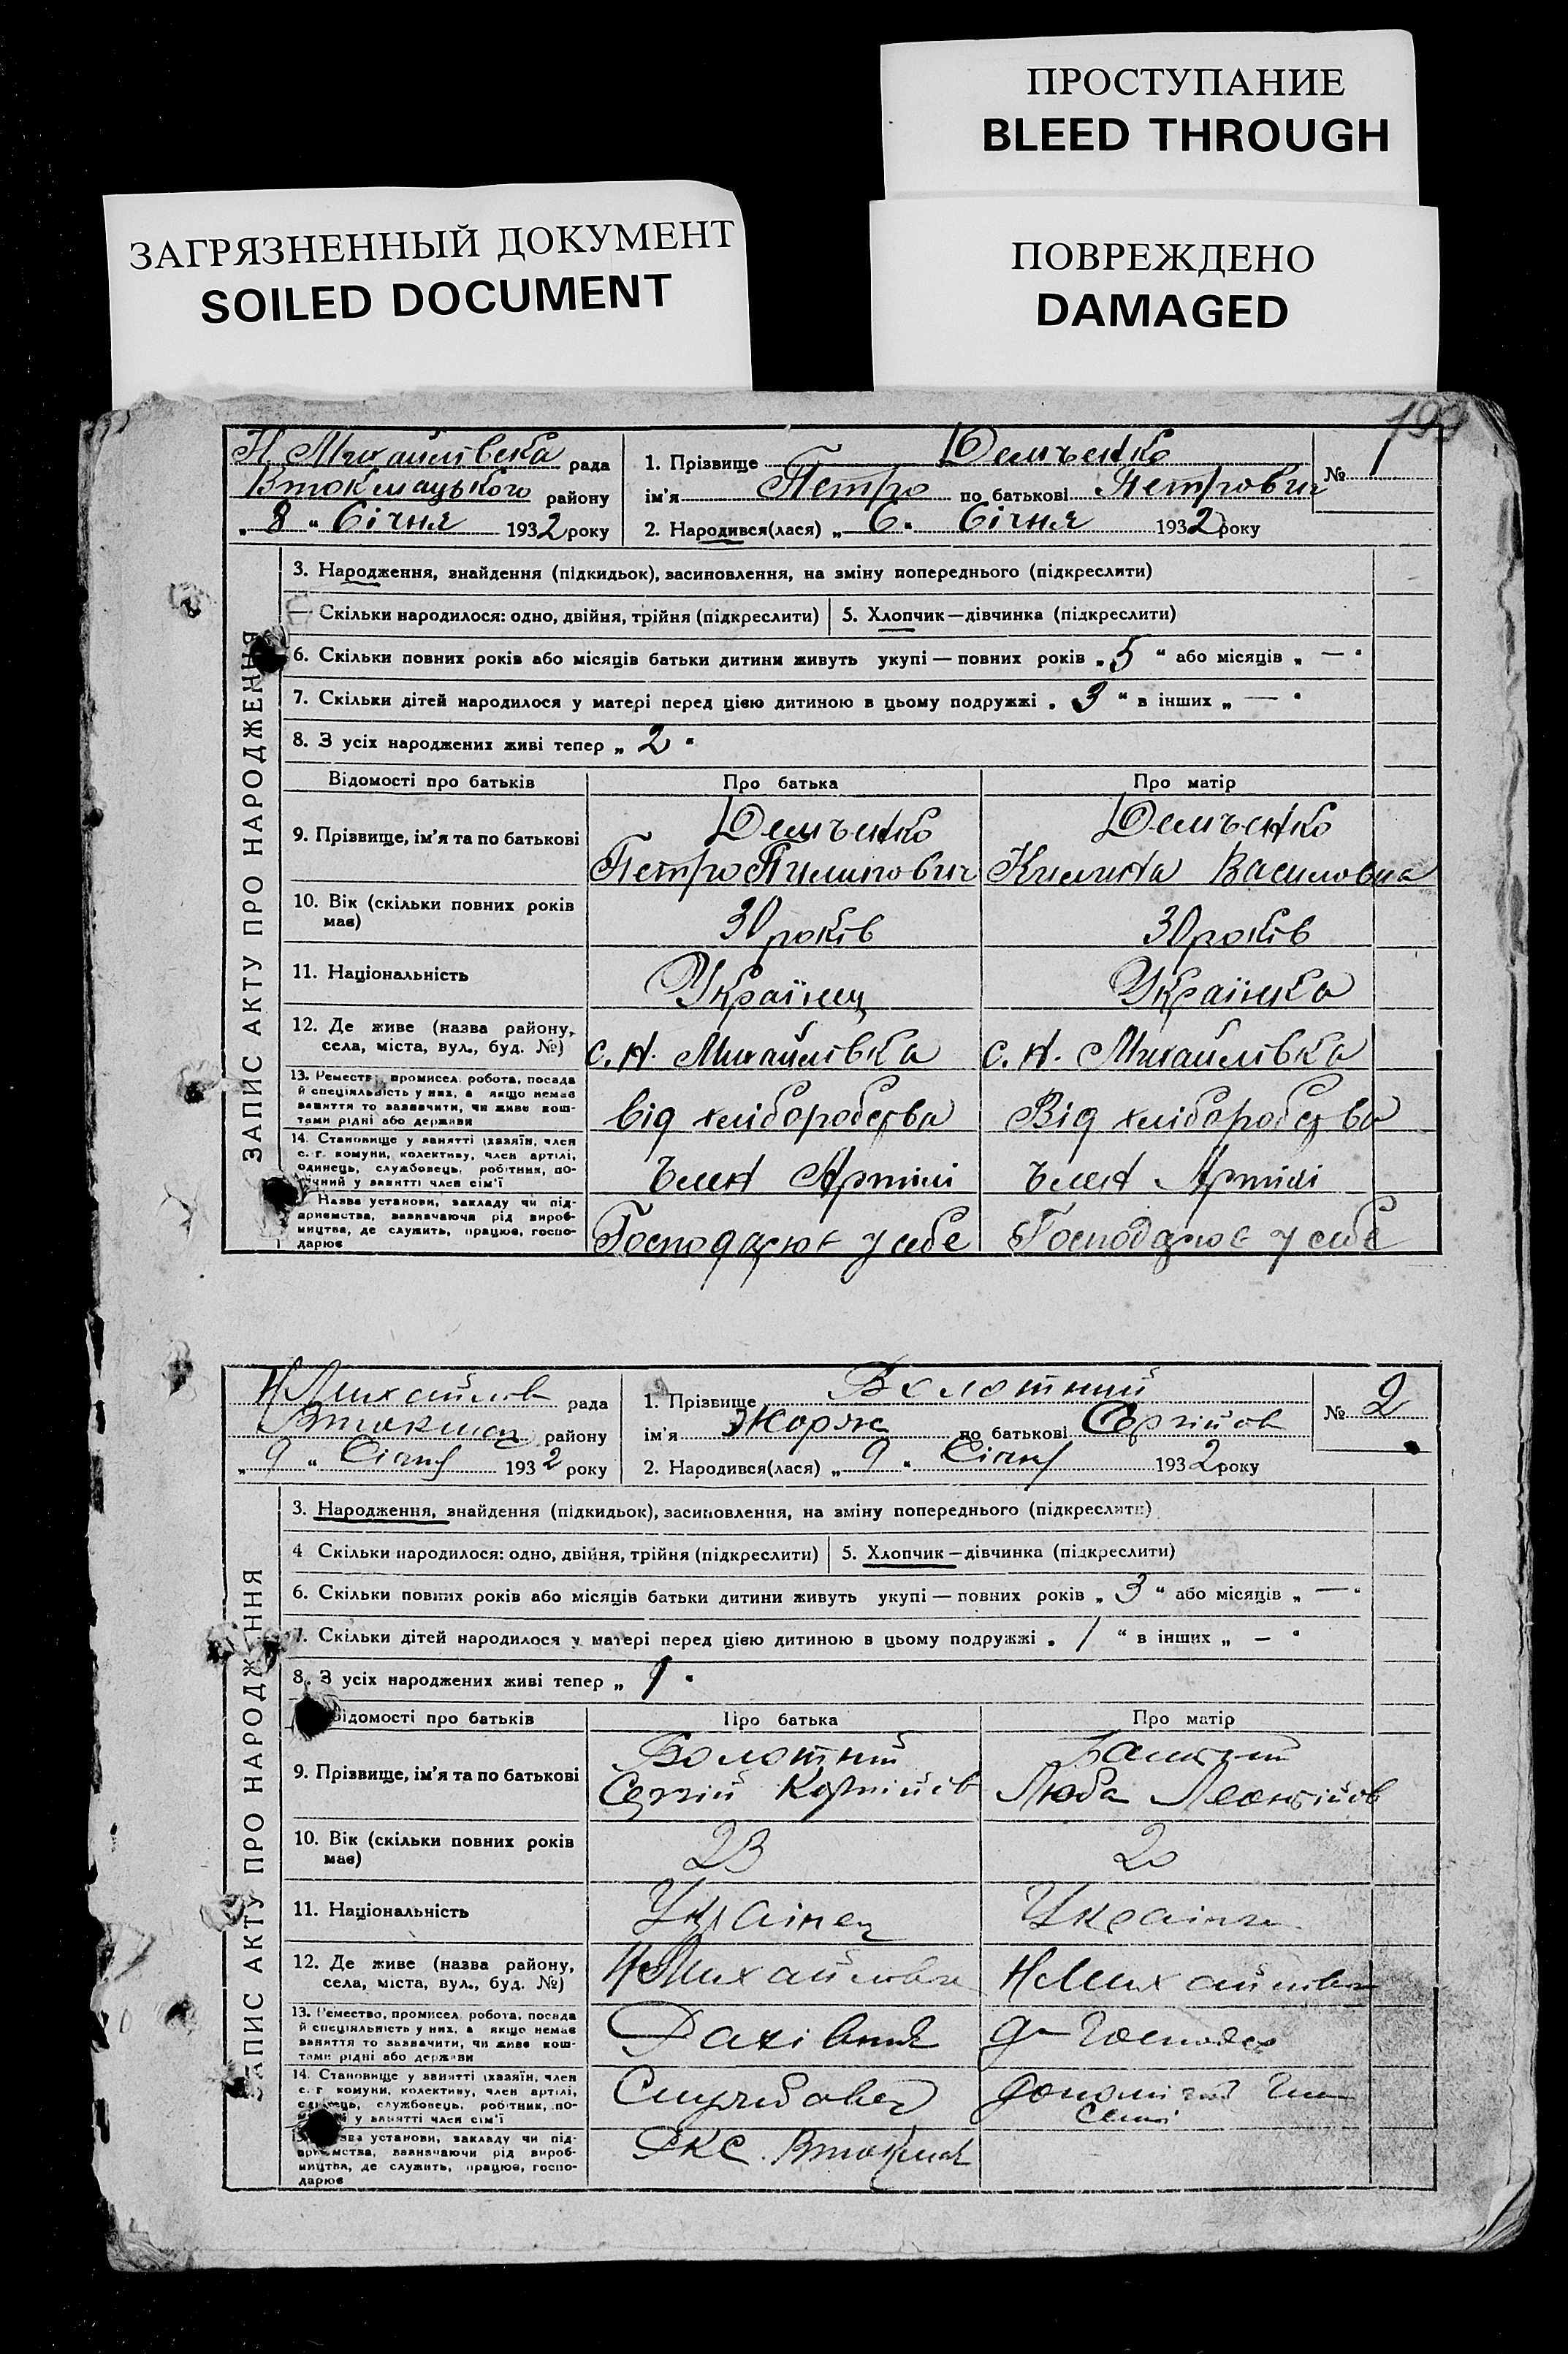 ПРОСТУПАНИЕ
BLEED THROUGH
ЗАГРЯЗНЕННЫЙ ДОКУМЕНТ
SOILED DOCUMENT
ПОВРЕЖДЕНО
DAMAGED
199
Н. Михайлівська рада
Втокмацького району
„ 8 “ Січня 1932 року
1. Прізвище Демченко
ім'я Петро по батькові Петрович
№ 1
2. Народився(лася) „ 6 “ Січня 1932 року
ЗАПИС АКТУ ПРО НАРОДЖЕННЯ
3. Народження, знайдення (підкидьок), засиновлення, на зміну попереднього (підкреслити)
Скільки народилося: одно, двійня, трійня (підкреслити) 5. Хлопчик—дівчинка (підкреслити)
6. Скільки повних років або місяців батьки дитини живуть укупі — повних років „ 5 “ або місяців „ — “
7. Скільки дітей народилося у матері перед цією дитиною в цьому подружжі „ 3 “ в інших „ — “
8. З усіх народжених живі тепер „ 2 “
Відомості про батьків Про батька Про матір
9. Прізвище, ім'я та по батькові
Демченко
Петро Пилипович
Демченко
Килина Василовна
10. Вік (скільки повних років має)
30 років
30 років
11. Національність
Українец
Українка
12. Де живе (назва району, села, міста, вул., буд. №)
с. Н. Михайлівка
с. Н. Михайлівка
13. Ремество, промисел, робота, посада
й спеціяльність у них, а якщо немає
заняття то зазначити, чи живе кош-
тами рідні або держави
від хліборобства
Від хліборобства
14. Становище у занятті (хазяїн, член
с.-г. комуни, колективу, член артілі,
одинець, службовець, робітник, по-
мічний у занятті член сім'ї
Член Артілі
Член Артілі
Назва установи, закладу чи під-
приємства, зазначаючи рід вироб-
ництва, де служить, працює, госпо-
дарює
Господарює у себе
Господарює у себе
Н Михайлов рада
Втокмац району
„ 9 “ Січня 1932 року
1. Прізвище Болотний
ім'я Жорж по батькові Сергійов
№ 2
2. Народився(лася) „ 9 “ Січня 1932 року
ЗАПИС АКТУ ПРО НАРОДЖЕННЯ
3. Народження, знайдення (підкидьок), засиновлення, на зміну попереднього (підкреслити)
4 Скільки народилося: одно, двійня, трійня (підкреслити) 5. Хлопчик—дівчинка (підкреслити)
6. Скільки повних років або місяців батьки дитини живуть укупі — повних років „ 3 “ або місяців „ — “
7. Скільки дітей народилося у матері перед цією дитиною в цьому подружжі „ 1 “ в інших „ — “
8. З усіх народжених живі тепер „ 1 “
Відомості про батьків Про батька Про матір
9. Прізвище, ім'я та по батькові
Болотний
Сергій Корнійов
Люба Леонтійов
10. Вік (скільки повних років має)
23
20
11. Національність
Українец
Українка
12. Де живе (назва району, села, міста, вул., буд. №)
Н Михайловка
Н Михайловка
13. Ремество, промисел, робота, посада
й спеціяльність у них, а якщо немає
заняття то зазначити, чи живе кош-
тами рідні або держави
14. Становище у занятті (хазяїн, член
с.-г. комуни, колективу, член артілі,
одинець, службовець, робітник, по-
мічний у занятті член сім'ї
Службовец
Назва установи, закладу чи під-
приємства, зазначаючи рід вироб-
ництва, де служить, працює, госпо-
дарює
Втокмак